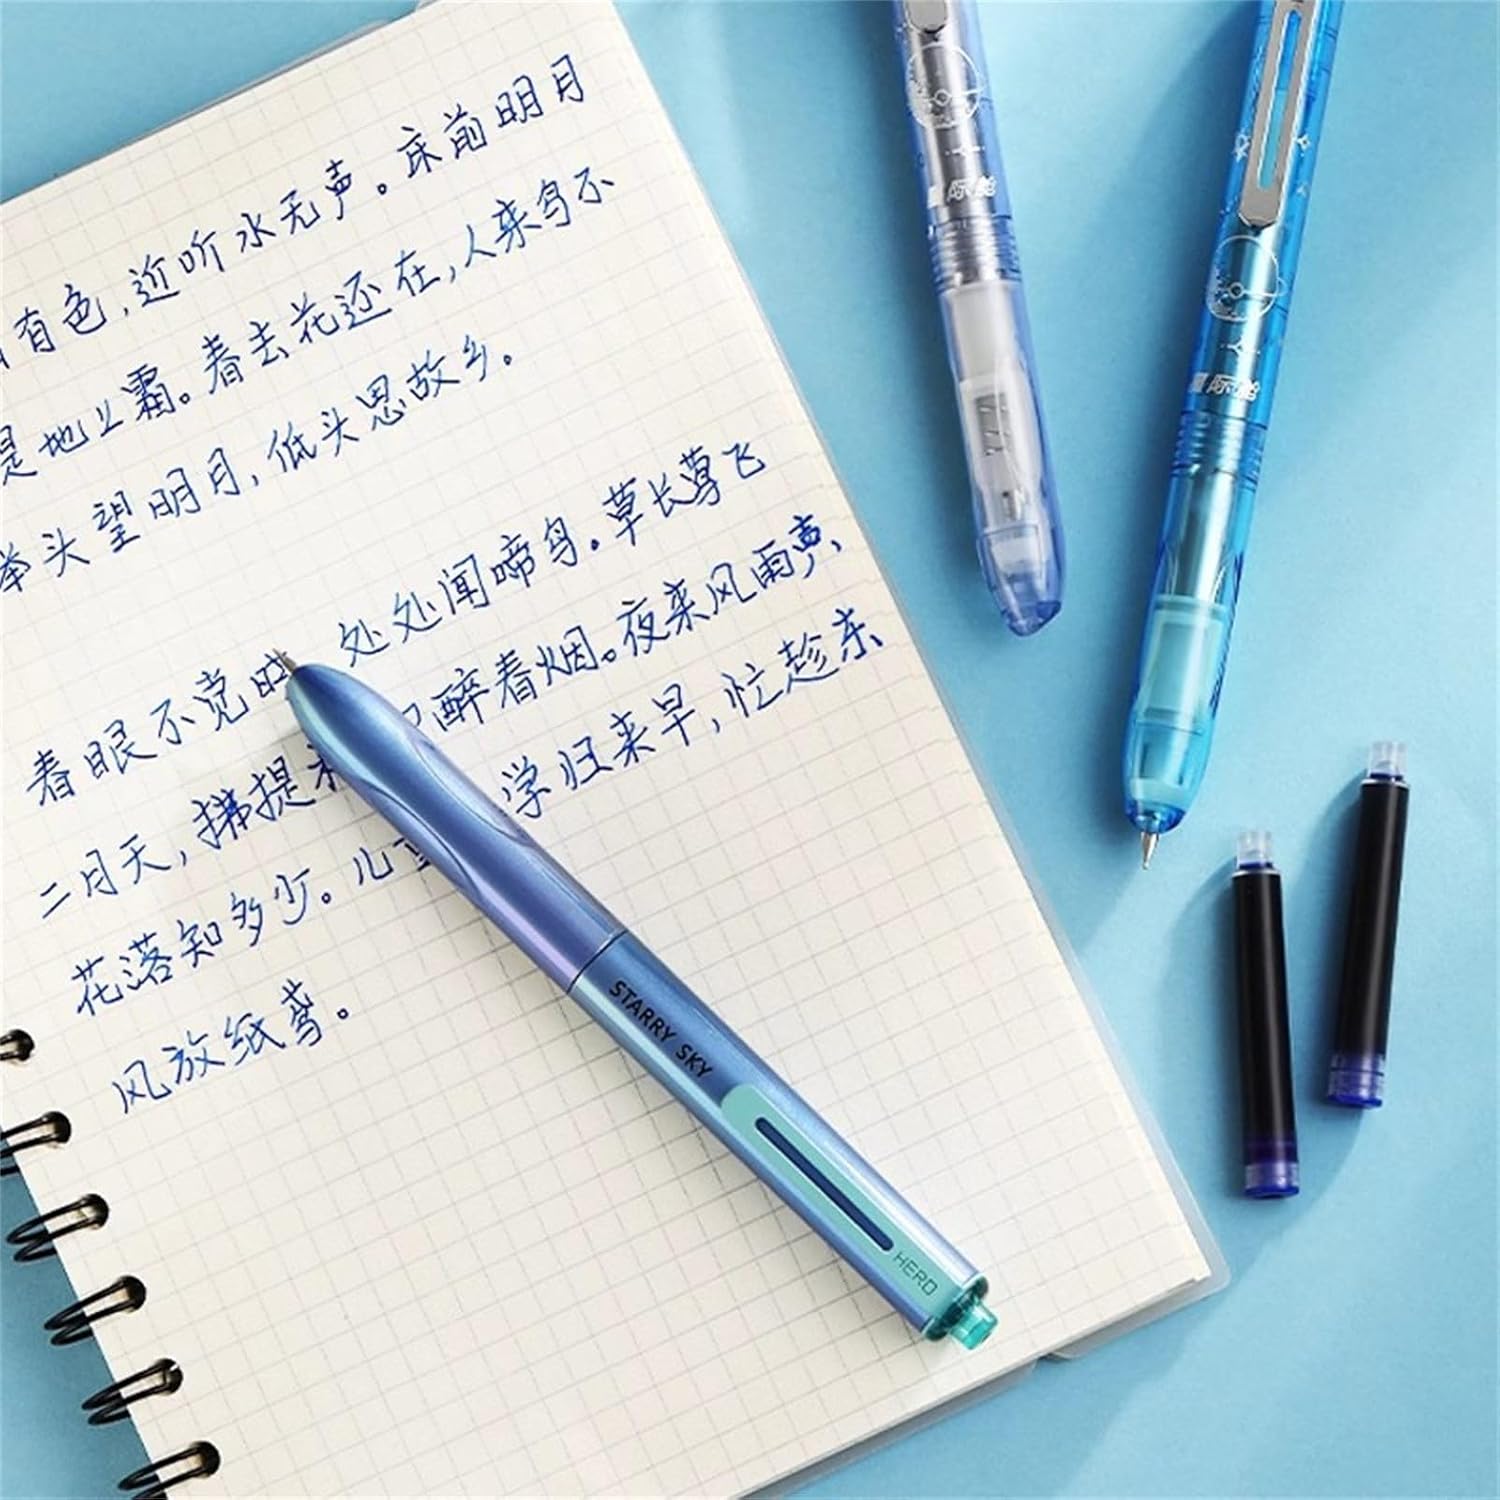 有色,近听水无声。床前明月
是地上霜。春去花还在,人来鸟不
举头望明月,低头思故乡。
春眠不觉晓 处处闻啼鸟。草长莺飞
二月天,拂提 醉春烟。夜来风雨声,
花落知多少。儿童 学归来早,忙趁东
风放纸鸢。
STARRY SKY
HERO
星际舱
星际舱